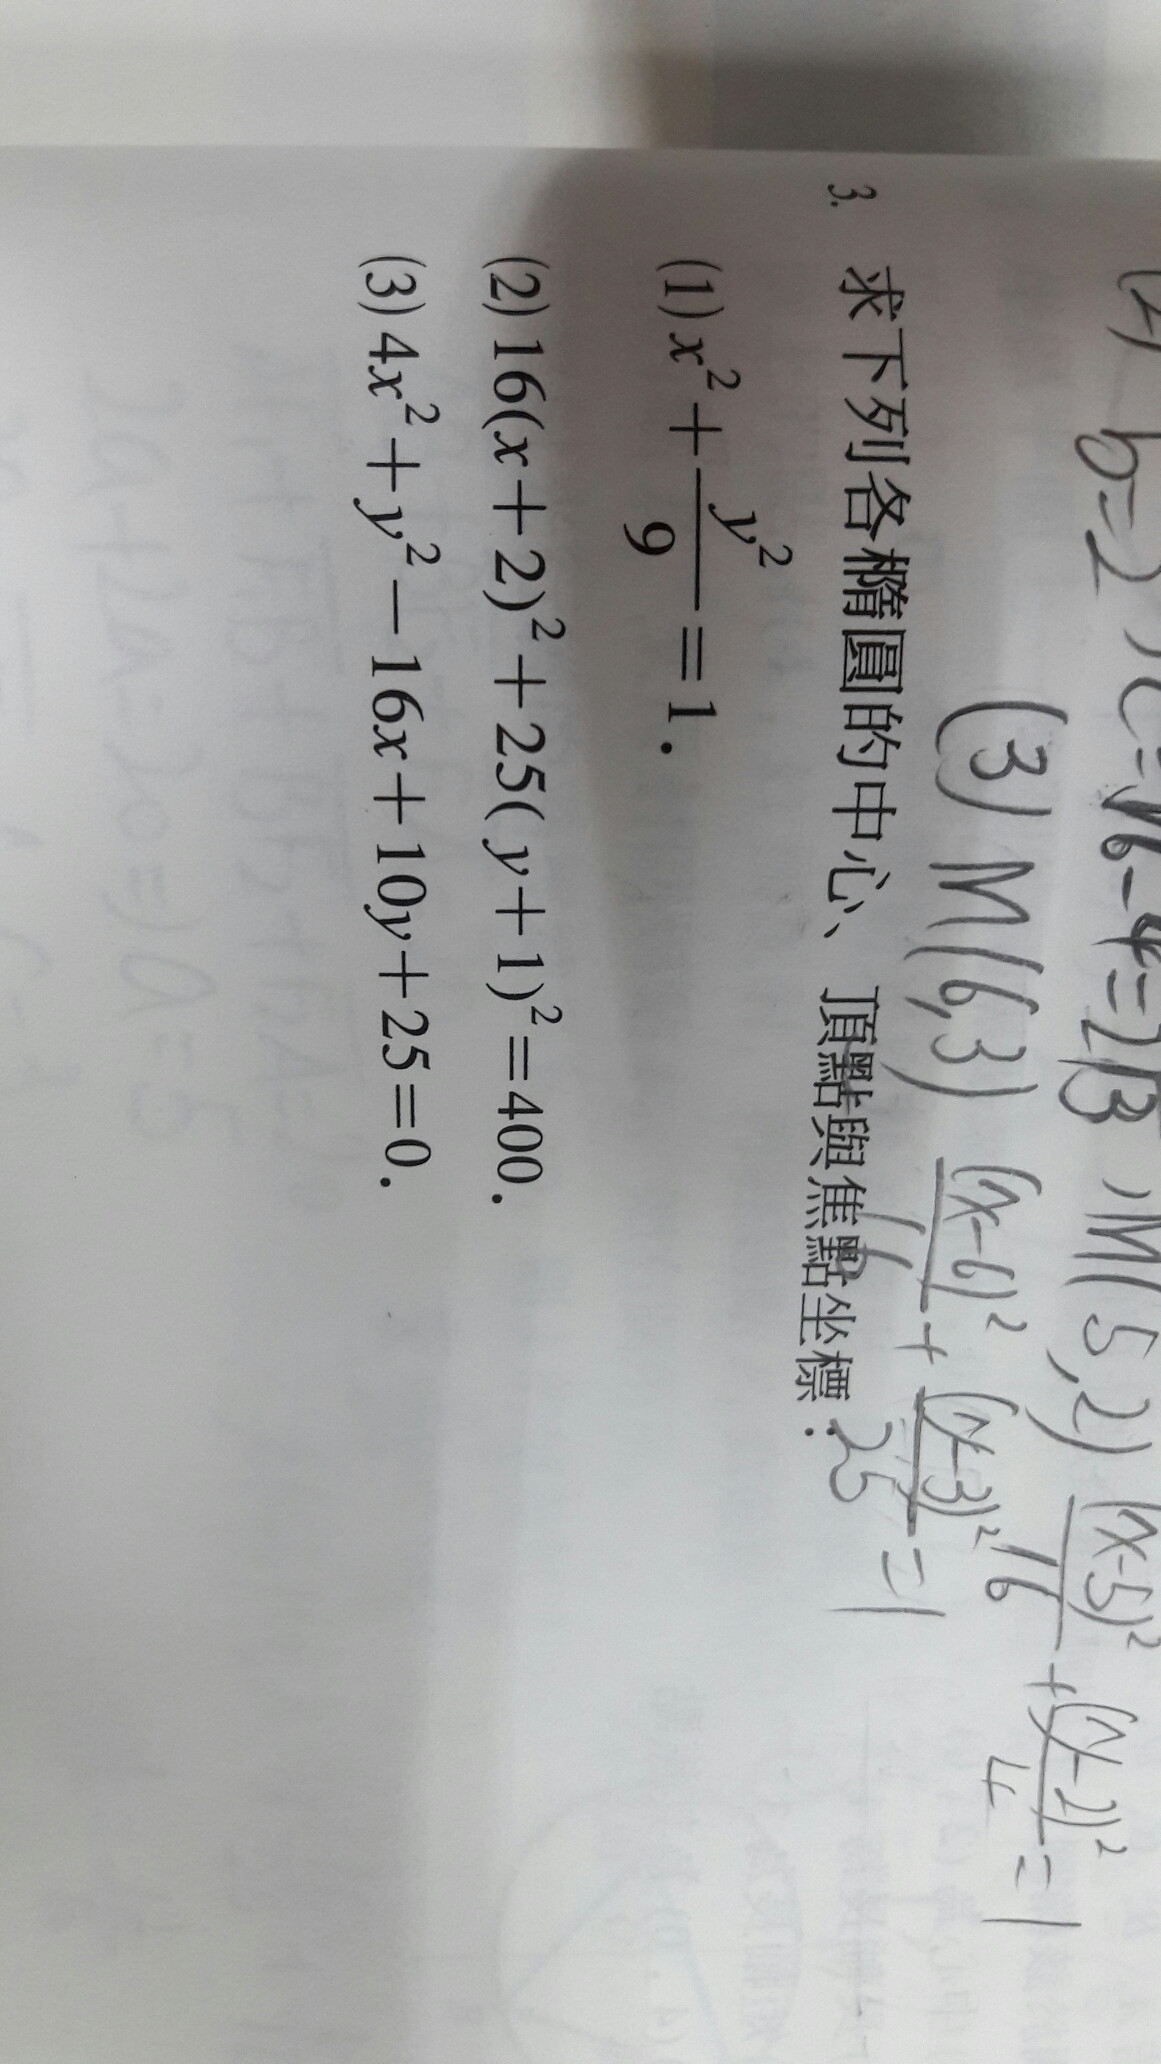 (2) b=2, c=√16-4=2√3, M(5,2) (x-5)²/16+(y-2)²/4=1
(3) M(6,3) (x-6)²/16+(y-3)²/25=1
3. 求下列各橢圓的中心、頂點與焦點坐標：
(1) x²+y²/9=1.
(2) 16(x+2)²+25(y+1)²=400.
(3) 4x²+y²-16x+10y+25=0.